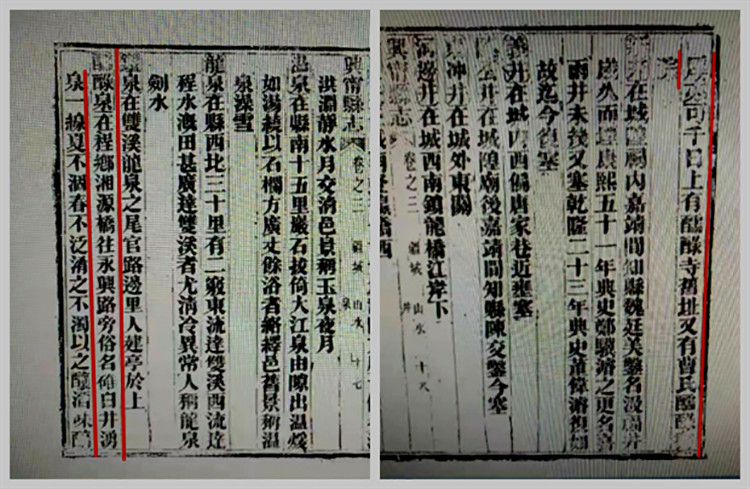 興甯縣志 卷之三 疆域 山水 泉 十七
洪淵靜水月交清邑景稱玉泉夜月
溫泉在縣南十五里巖石接倚大江泉由隙出溫煖
如湯繞以石欄方廣丈餘浴者絡繹邑舊景稱溫
泉澡雪
龍泉在縣西北三十里有二竅東流達雙溪西流達
程水溉田甚廣達雙溪者尤清冷異常人稱龍泉
劍水
泉在雙溪龍泉之尾官路邊里人建亭於上
醁泉在程鄉湘源橋往永興路旁俗名 白井湧
泉一線夏不涸春不泛淆之不濁以之釀酒味醇
可千日上有醽醁寺舊址又有曹氏醽醁
井在城隍廟內嘉靖間知縣魏廷美鑿名 井
歲久而堙康熙五十一年典史鄭驥濬之更名喜
雨井未後又塞乾隆二十三年典史董偉濬復如
故迄今復塞
井在城內西偏唐家巷近壅塞
井在城隍廟後嘉靖間知縣陳交鑿今塞
沖井在城外東關
邊井在城西南鎖龍橋江岸下
興甯縣志 卷之三 疆域 山水 井 十八